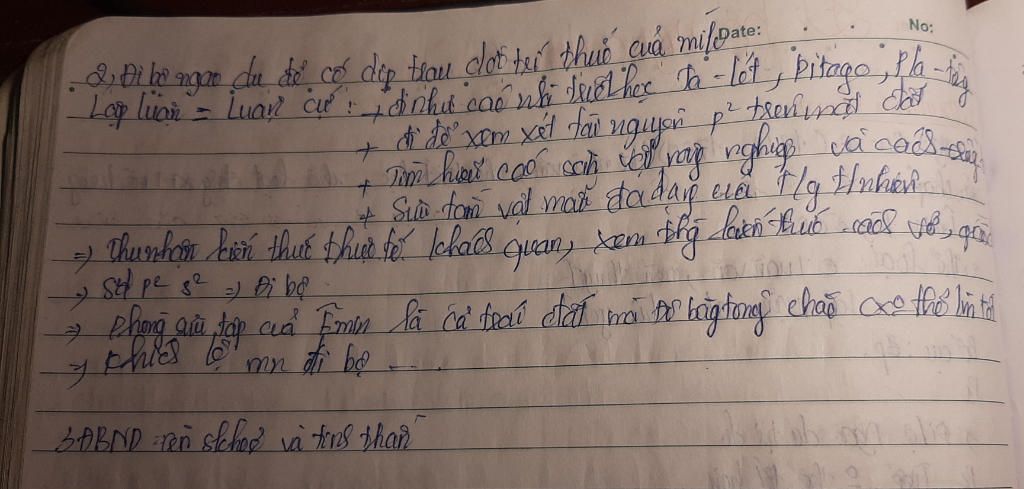 Date: No:
2, Đi bộ ngao du để có dịp trau dồi tri thức của mình
Lập luận = Luận cứ: + đi như các nhà triết học Ta-lét, Pitago, Pla-tông
+ đi để xem xét tài nguyên p² trên mặt đất
+ Tìm hiểu các sản vật nông nghiệp và cách trồng
+ Sưu tầm vật mẫu đa dạng của t/g t/nhiên
=> Thu nhận kiến thức thực tế, khách quan, xem thg kiến thức sách vở,
=> Sd p² s² => Đi bộ
=> Phòng sưu tập của Êmin là cả trái đất mà Đô băngtông chắc
=> Khích lệ mn đi bộ ....
3, ĐBND: rèn skhoẻ và tinh thần